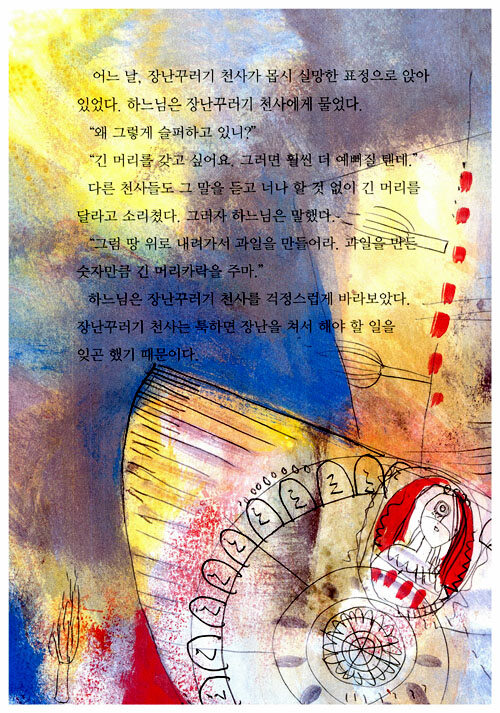 어느 날, 장난꾸러기 천사가 몹시 실망한 표정으로 앉아
있었다. 하느님은 장난꾸러기 천사에게 물었다.
“왜 그렇게 슬퍼하고 있니?”
“긴 머리를 갖고 싶어요. 그러면 훨씬 더 예뻐질 텐데.”
다른 천사들도 그 말을 듣고 너나 할 것 없이 긴 머리를
달라고 소리쳤다. 그러자 하느님은 말했다.
“그럼 땅 위로 내려가서 과일을 만들어라. 과일을 만든
숫자만큼 긴 머리카락을 주마.”
하느님은 장난꾸러기 천사를 걱정스럽게 바라보았다.
장난꾸러기 천사는 툭하면 장난을 쳐서 해야 할 일을
잊곤 했기 때문이다.